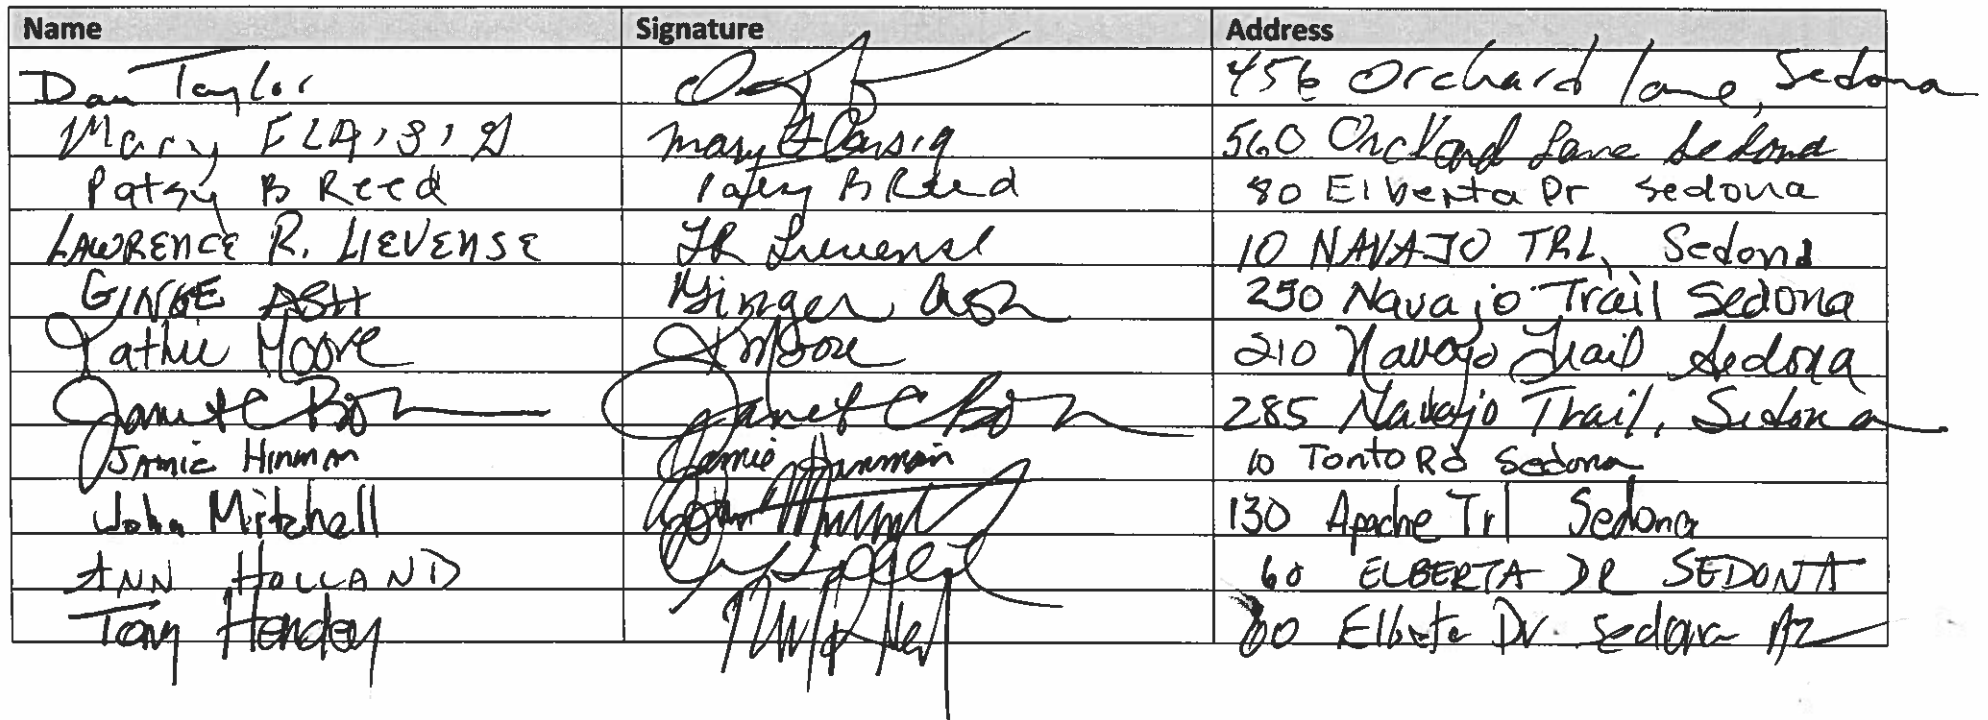 Name Signature Address
Dan Taylor 456 Orchard lane, Sedona
Mary 560 Orchard Lane Sedona
Patsy B Reed Patsy B Reed 80 Elberta Dr Sedona
LAWRENCE R. LIEVENSE LR Lievense 10 NAVAJO TRL, Sedona
GINGE ASH Ginger Ash 250 Navajo Trail Sedona
Kathie Moore K Moore 210 Navajo Trail Sedona
Janet C Janet C 285 Navajo Trail, Sedona
JAMIE HINMAN Jamie Hinman 10 Tonto Rd Sedona
John Mitchell John 130 Apache Trl Sedona
ANN HOLLAND 60 ELBERTA DR SEDONA
Tony Elberta Dr. Sedona AZ